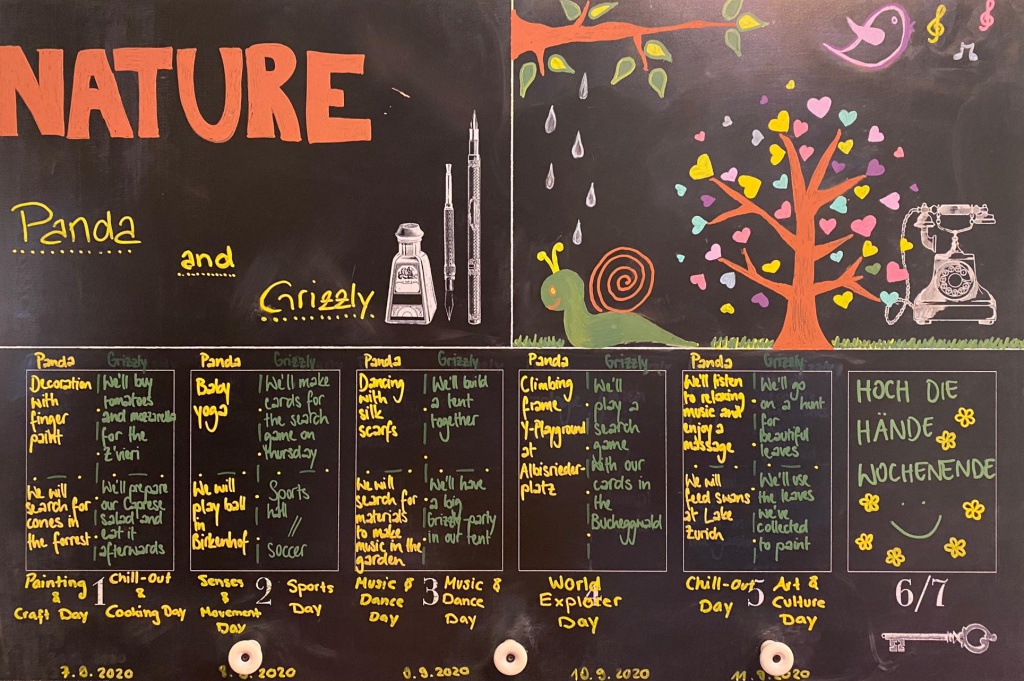 NATURE
Panda
and
Grizzly
Panda
Decoration
with
finger
paint
We will
search for
cones in
the forrest
Grizzly
We'll buy
tomatoes
and mozzarella
for the
z'vieri
We'll prepare
our Caprese
salad and
eat it
afterwards
Panda
Baby
yoga
We will
play ball
in
Birkenhof
Grizzly
We'll make
cards for
the search
game on
thursday
Sports
hall
//
soccer
Panda
Dancing
with
silk
scarfs
We will
search for
materials
to make
music in the
garden
Grizzly
We'll build
a tent
together
We'll have
a big
Grizzly-party
in our tent
Panda
Climbing
frame
Y-Playground
at
Albisrieder-
platz
Grizzly
We'll
play a
search
game
with our
cards in
the
Bucheggwald
Panda
We'll listen
to relaxing
music and
enjoy a
massage
We will
feed swans
at Lake
Zurich
Grizzly
We'll go
on a hunt
for
beautiful
leaves
We'll use
the leaves
we've
collected
to paint
HOCH DIE
HÄNDE
WOCHENENDE
Painting
&
Craft Day
1
Chill-Out
&
Cooking Day
Senses
&
Movement
Day
2
Sports
Day
Music &
Dance
Day
3
Music &
Dance
Day
World
Explorer
Day
4
Chill-Out
Day
5
Art &
Culture
Day
6/7
9.2020
10.9.2020
2020